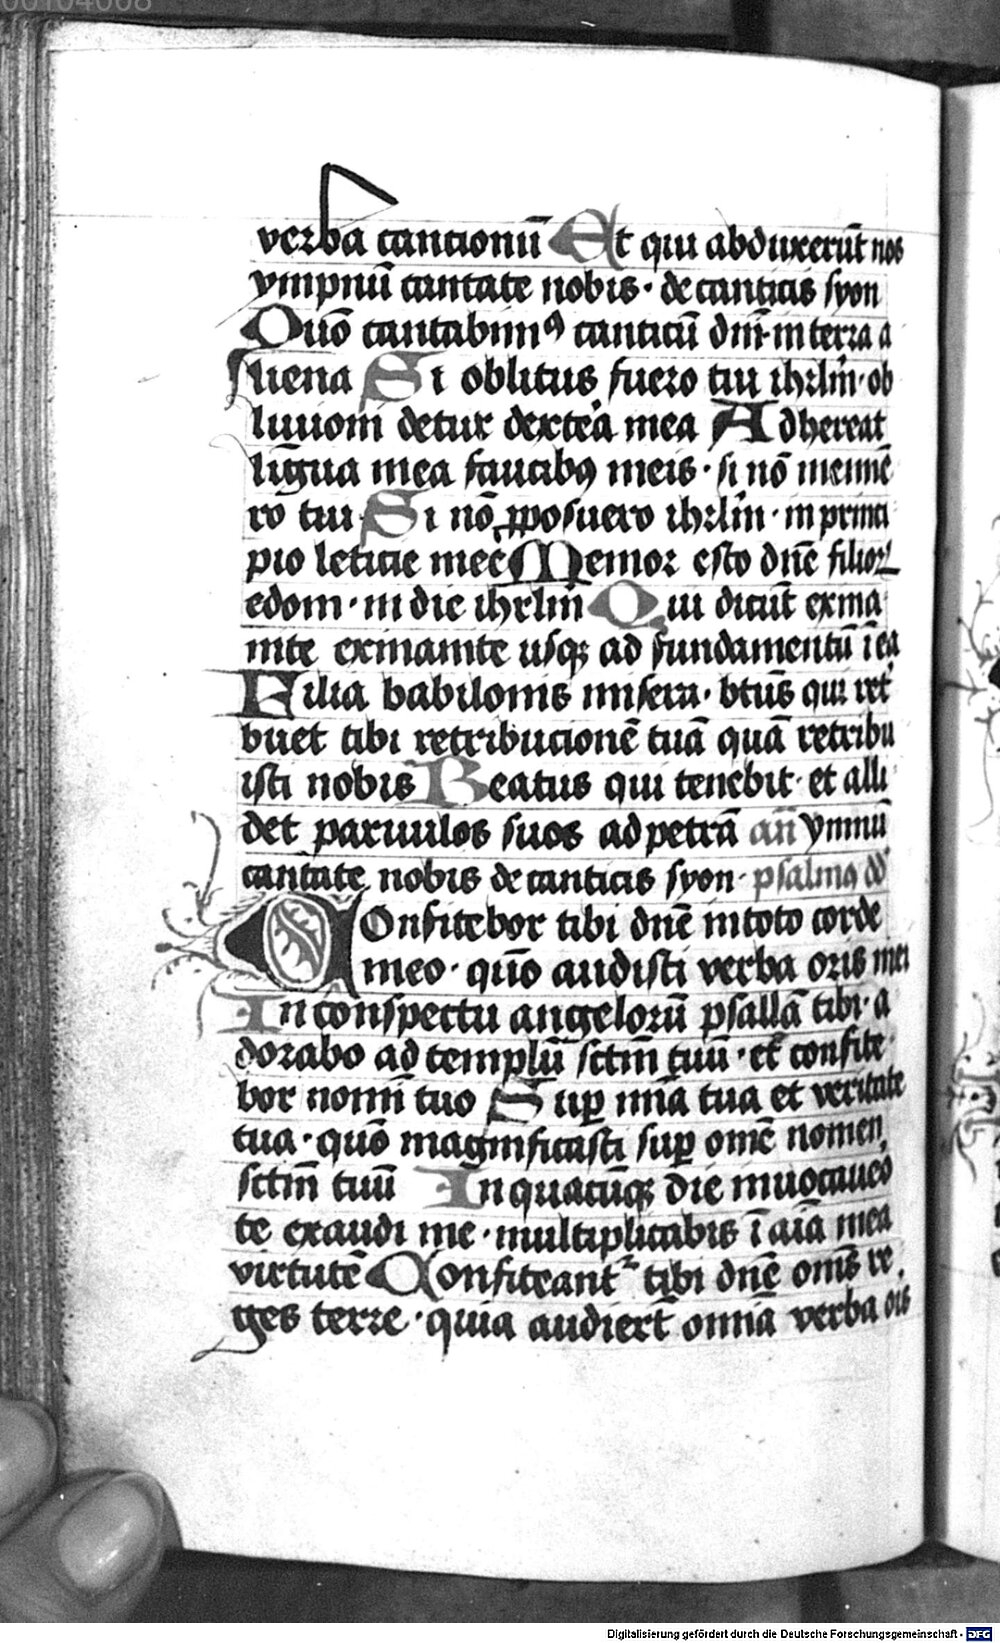 00104008
verba cancionū Et qui abduxerūt nos
ympnū cantate nobis · de canticis syon
Quō cantabimꝰ canticū dn̄i · in terra a
liena Si oblitus fuero tui ihrlm̄ · ob
liuioni detur dextēa mea Adhereat
lingua mea faucibꝰ meis · si nō meīnē
ro tui Si nō ꝓposuero ihrlm̄ · in princi
pio leticie mee Memor esto dn̄e filioꝝ
edom · in die ihrlm̄ Qui dicūt exina
nite exinanite usqꝫ ad fundamentū ī ea
Filia babilonis misera · btūs qui ret
buet tibi retribucionē tuā quā retribu
isti nobis Beatus qui tenebit · et alli
det paruulos suos ad petrā an̄ ymnū
cantate nobis de canticis syon · psalmꝰ dd
Confitebor tibi dn̄e in toto corde
meo · quō audisti verba oris mei
In conspectu angelorū psallā tibi · a
dorabo ad templū sctm̄ tuū · et confite
bor nomī tuo Suꝑ mīa tua et veritate
tua · quō magnificasti suꝑ omē nomen
sctm̄ tuū In quacūqꝫ die inuocauero
te exaudi me · multiplicabis ī aīa mea
virtutē Confiteant᷑ tibi dn̄e oms̄ re
ges terre · quia audiert̄ omnia verba oris
Digitalisierung gefördert durch die Deutsche Forschungsgemeinschaft - DFG